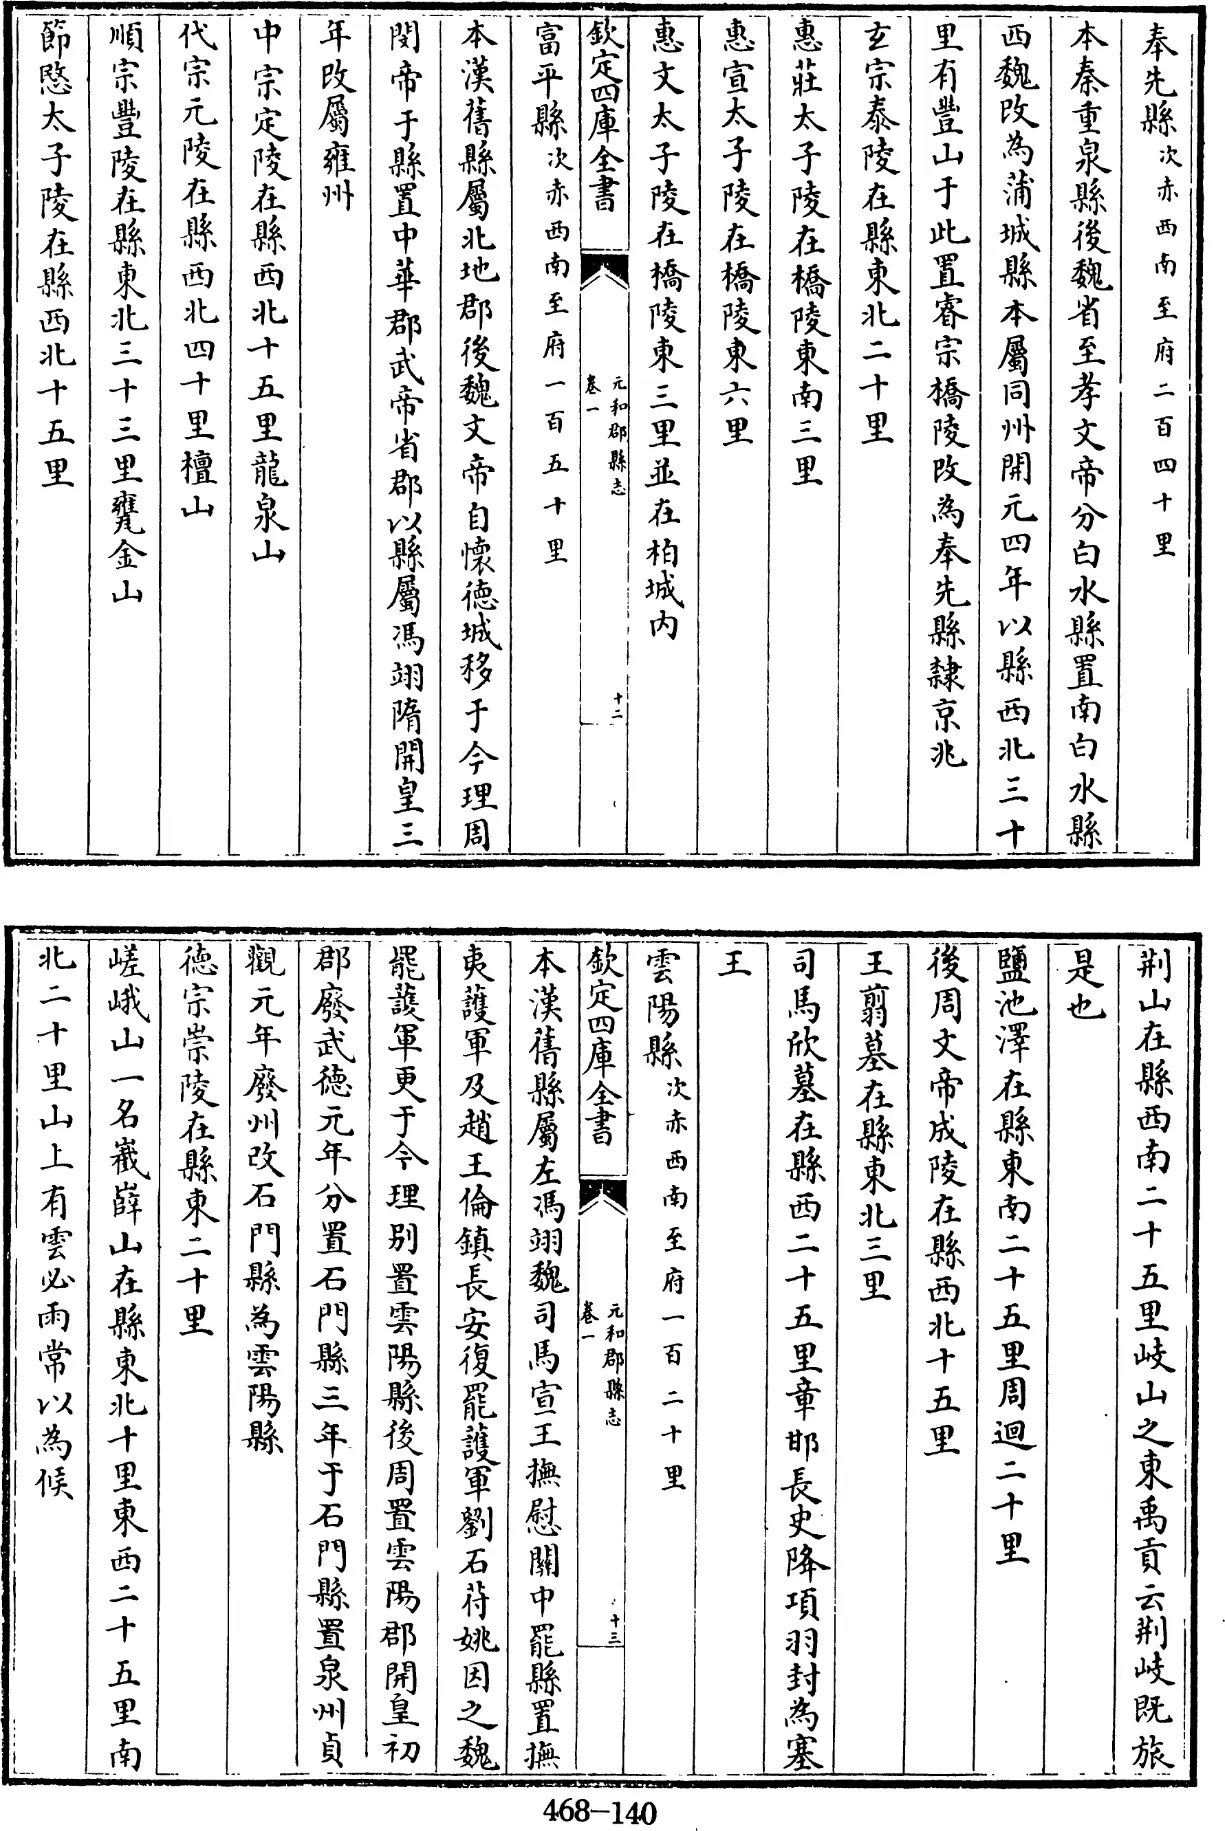 奉先縣次赤西南至府二百四十里
本秦重泉縣後魏省至孝文帝分白水縣置南白水縣
西魏改為蒲城縣本屬同州開元四年以縣西北三十
里有豐山于此置睿宗橋陵改為奉先縣隸京兆
玄宗泰陵在縣東北二十里
惠莊太子陵在橋陵東南三里
惠宣太子陵在橋陵東六里
惠文太子陵在橋陵東三里並在柏城内
欽定四庫全書
元和郡縣志
卷一
十二
富平縣次赤西南至府一百五十里
本漢舊縣屬北地郡後魏文帝自懷德城移于今理周
閔帝于縣置中華郡武帝省郡以縣屬馮翊隋開皇三
年改屬雍州
中宗定陵在縣西北十五里龍泉山
代宗元陵在縣西北四十里檀山
順宗豐陵在縣東北三十三里甕金山
節愍太子陵在縣西北十五里
荆山在縣西南二十五里岐山之東禹貢云荆岐既旅
是也
鹽池澤在縣東南二十五里周迴二十里
後周文帝成陵在縣西北十五里
王翦墓在縣東北三里
司馬欣墓在縣西二十五里章邯長史降項羽封為塞
王
雲陽縣次赤西南至府一百二十里
欽定四庫全書
元和郡縣志
卷一
十三
本漢舊縣屬左馮翊魏司馬宣王撫慰關中罷縣置撫
夷護軍及趙王倫鎮長安復罷護軍劉石苻姚因之魏
罷護軍更于今理别置雲陽縣後周置雲陽郡開皇初
郡廢武德元年分置石門縣三年于石門縣置泉州貞
觀元年廢州改石門縣為雲陽縣
德宗崇陵在縣東二十里
嵯峨山一名嶻嶭山在縣東北十里東西二十五里南
北二十里山上有雲必雨常以為候
468-140